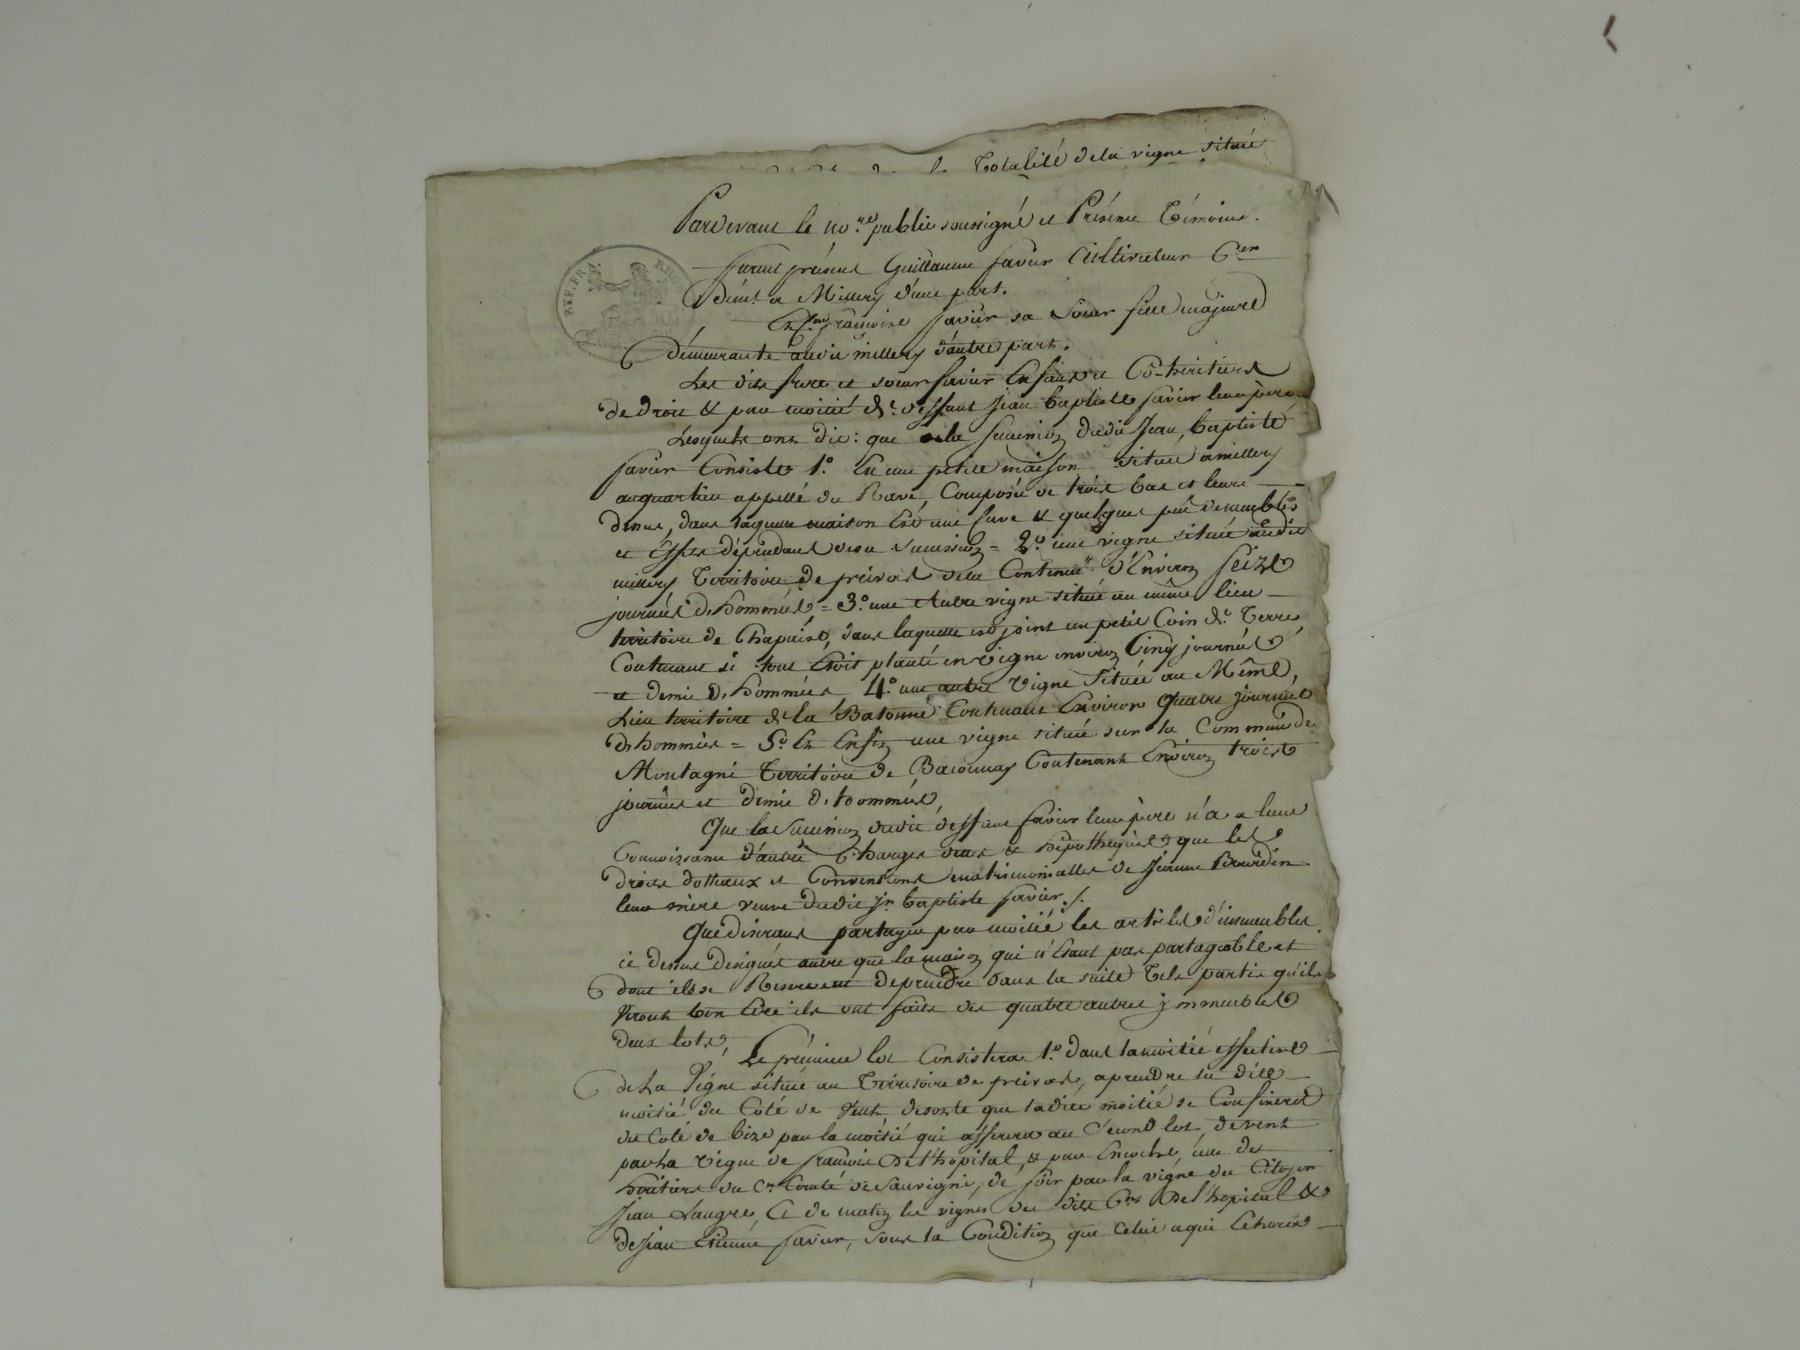 Totalité de la vigne située
Pardevant le no.re public soussigné et Présence Témoins.
REP. FRA. RHO
furent présens Guillaume favier Cultivateur C.en
demt. a Millery d'une part.
Et f.se françoise favier sa Soeur fille majeure
demeurante audit millery d'autre part.
Les dits frere et soeur favier Enfans et Co-heritiers
de droit & par moitié de deffunt Jean baptiste favier leur père
Lesquels ont dit: que la succession dudit Jean baptiste
favier Consiste 1.° En une petite maison située a millery
au quartier appellé du Rave, Composée de trois bas et leurs
dessus, dans laquelle maison Est une cuve & quelques peu de meubles
et Effets dépendant de sa succession = 2.° une vigne située audit
millery Territoire de preivas de la Contenue d'Environ seize
journées d'hommées = 3.° une Autre vigne située au même lieu
territoire de Chapuise, dans laquelle est joint un petit Coin de Terre
Contenant si tout Etoit planté en vigne environ Cinq journées
et demie d'hommées 4.° une autre Vigne Située au Même
Lieu territoire de la Batonne Contenant Environ quatre journées
d'hommées = 5.° Et Enfin une vigne située sur la Commune de
Montagni Territoire de Bacounay Contenant Environ trois
journées et demie d'hommées,
Que la succession dudit deffunt favier leur père n'a a leur
Connoissance d'autre Charges dettes & hipotheques que les
droits dottaux et Conventions matrimonialles de Jeanne Bourdin
leur mère veuve dudit Jn. baptiste favier./.
Que désirant partager par moitié les articles d'immeubles
ci dessus designés autre que la maison qui n'étant pas partageable et
dont ils se Reservent de prendre dans la suite Tels partis qu'ils
Veront bon Etre ils ont faits des quatre autres immeubles
deux lots,
Le premier lot Consistera 1.° dans la moitié effective
de La Vigne située au Térritoire de preivas, a prendre la dite
moitié du Coté de Vent desorte que ladite moitié se Confinera
du Coté de bize par la moitié qui afferera au second lot, de vent
par La vigne de françois De l'hopital, & par Encoche, une des
héritiers du C.en Comté de Sauvigni, de soir par la vigne du Citoyen
Jean Laugre, Et de matin les vignes des dits C.ens De l'hopital &
de Jean Etienne favier, sous la Condition que Celui a qui Echoira